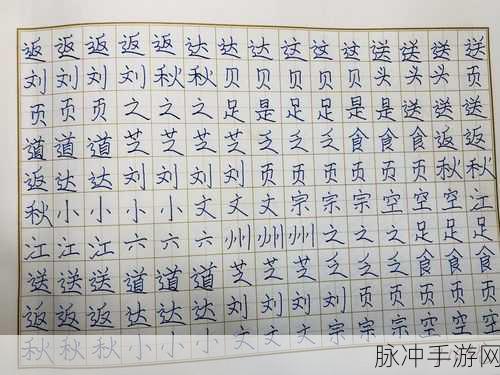 返返返返返达达达这这这送送送送
刘刘刘刘秋秋贝贝贝贝贝头头头页
页页页之之之足是足足是是送送送
道道道芝芝芝乏乏乏食食食食返返
返达达刘刘刘刘页页页页宗宗秋秋
秋小小小小文文文宗宗宗空空空江
江江江六六六州州州之之之足足足
送送送道道道芝芝芝乏乏乏食食食
返返返达达达刘刘刘刘页页页页空
秋秋秋小小小文文文宗宗宗空空空
脉冲手游网